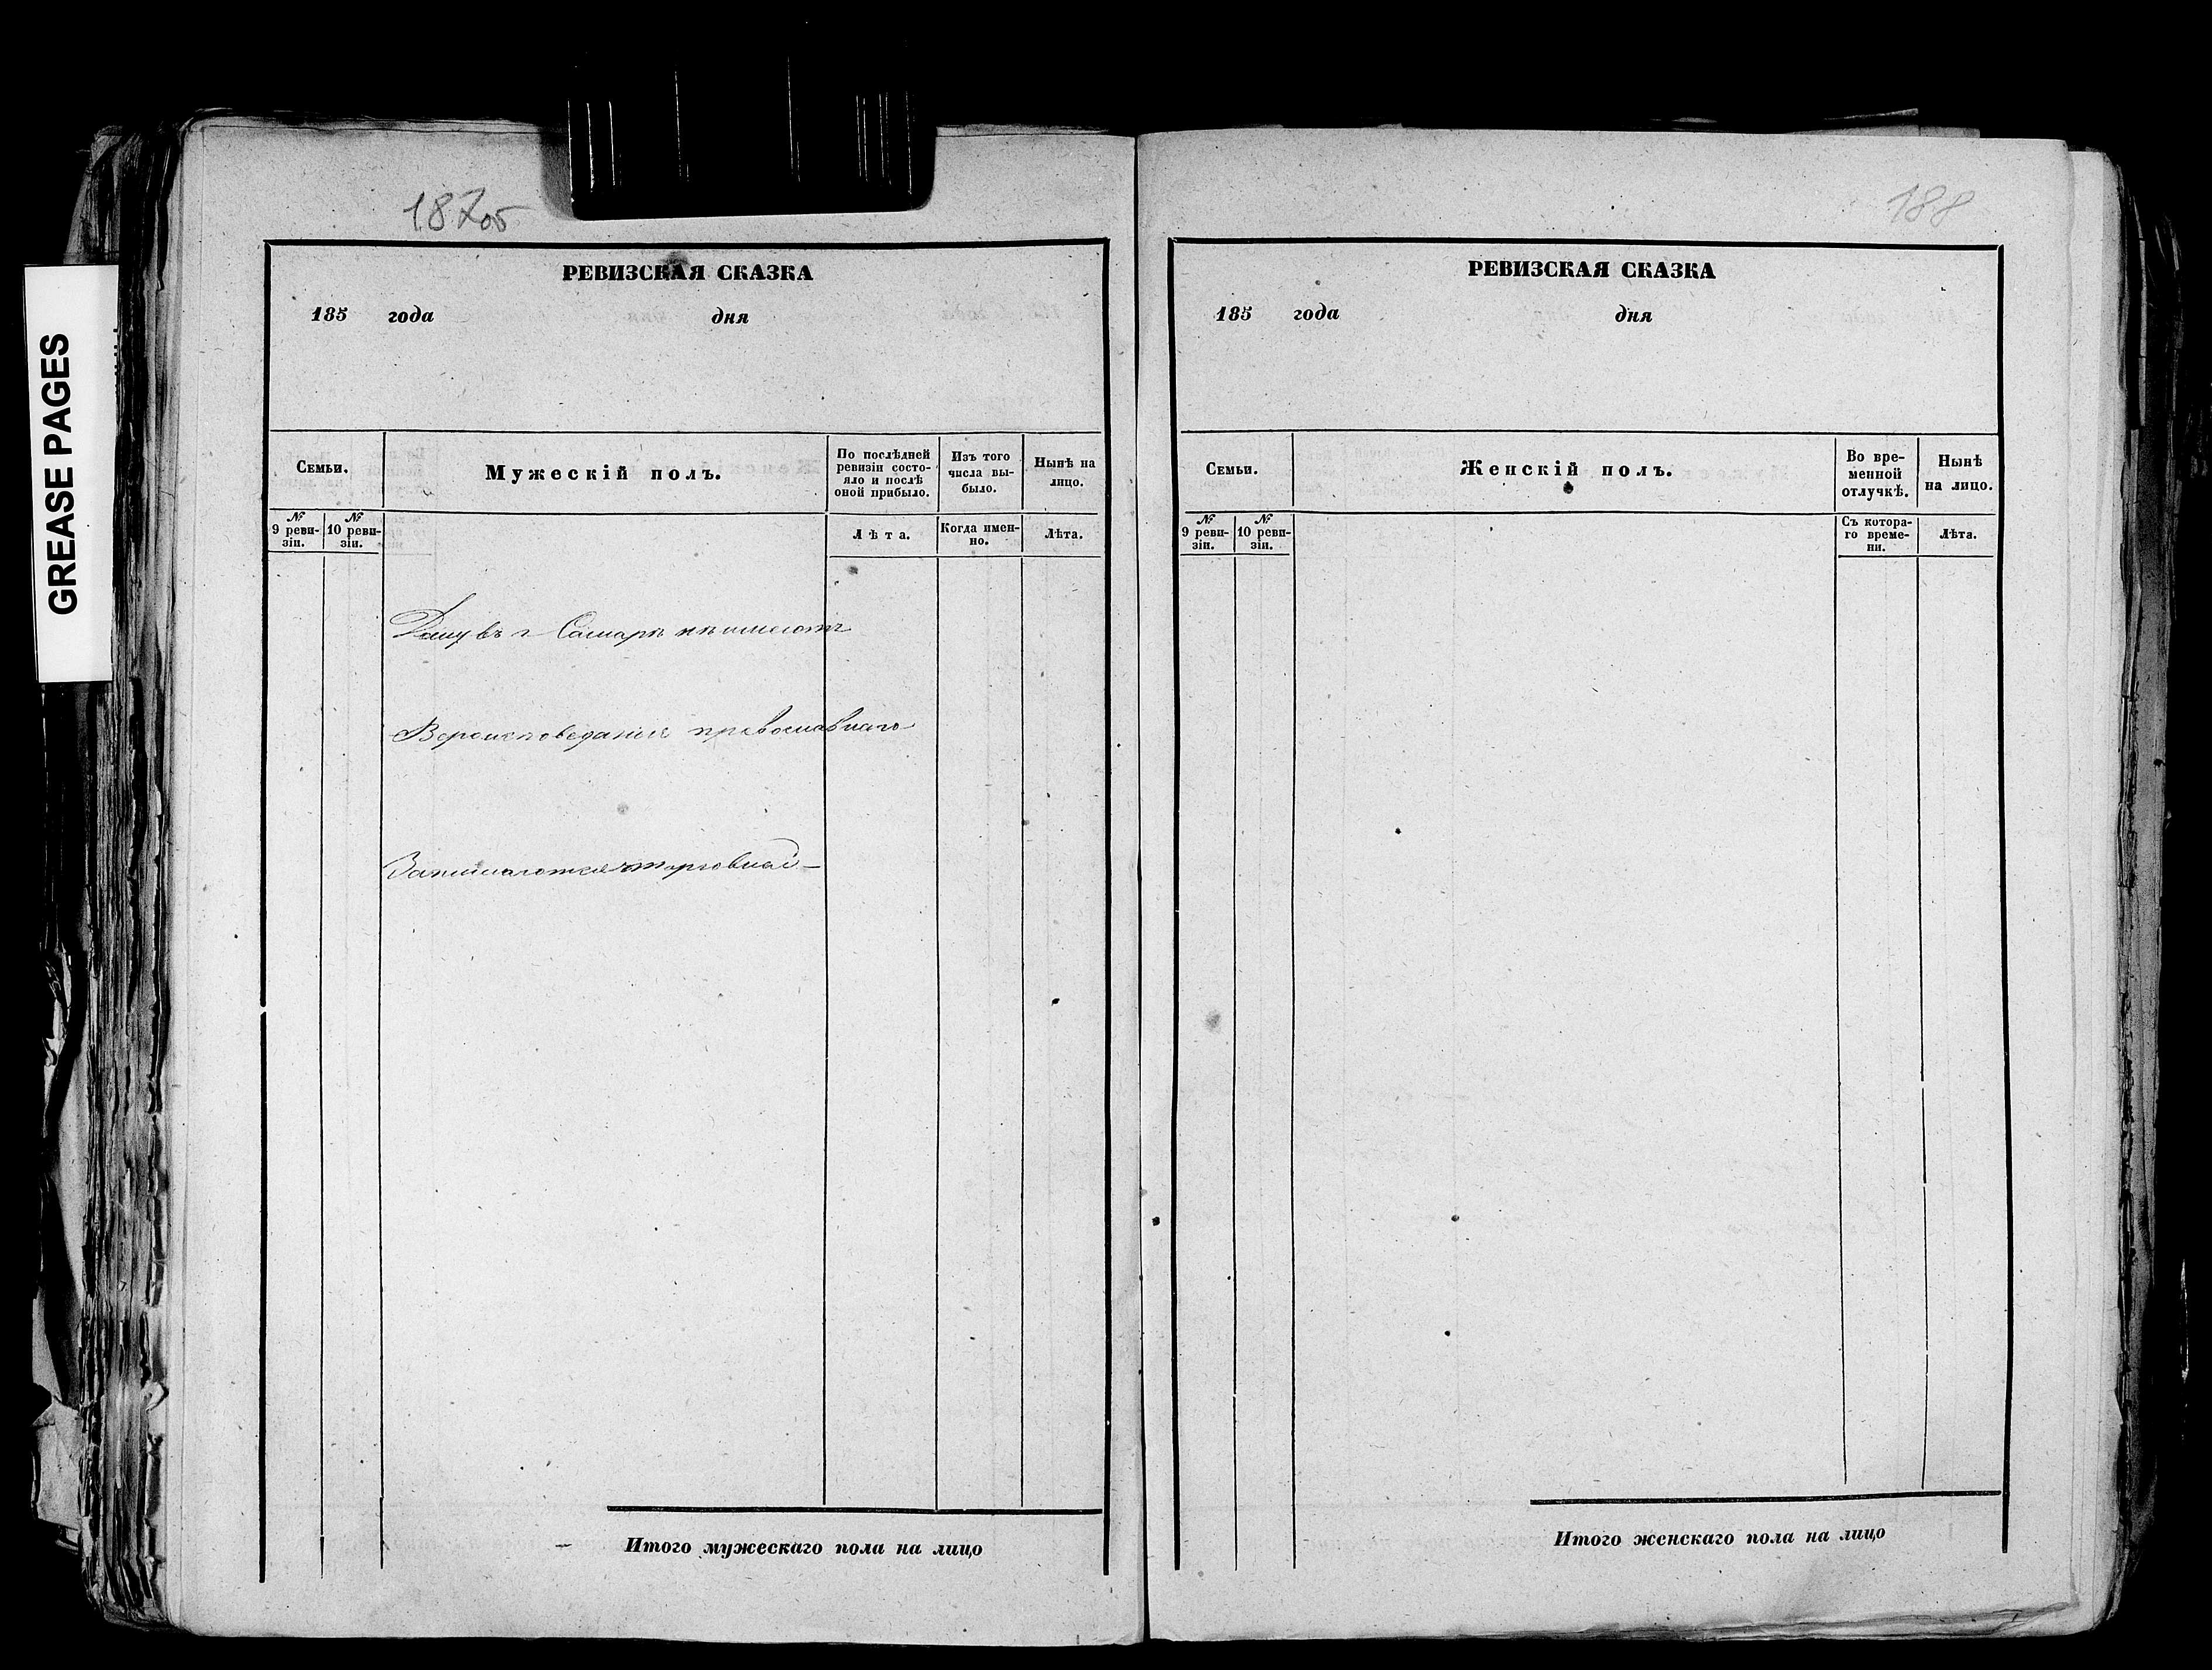 GREASE PAGES
187об
РЕВИЗСКАЯ СКАЗКА
185 года дня
Семьи.
Мужескій полъ.
По послѣдней ревизіи состо-
яло и послѣ
оной прибыло.
Изъ того
числа вы-
было.
Нынѣ на
лицо.
№
9 реви-
зіи.
№
10 реви-
зіи.
Лѣта.
Когда имен-
но.
Лѣта.
Дому въ г Самарѣ не имеютъ
Вероисповеданія православнаго
Занимаются торговлей
Итого мужескаго пола на лицо
188
РЕВИЗСКАЯ СКАЗКА
185 года дня
Семьи.
Женскій полъ.
Во вре-
менной
отлучкѣ.
Нынѣ
на лицо.
№
9 реви-
зіи.
№
10 реви-
зіи.
Съ котора-
го време-
ни.
Лѣта.
Итого женскаго пола на лицо